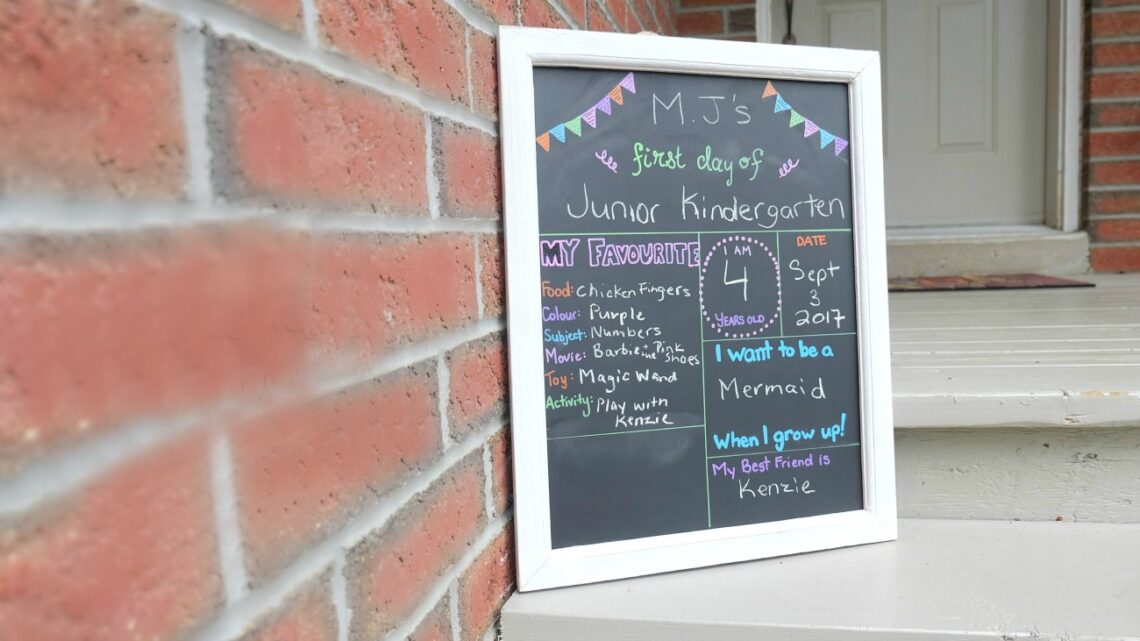 M.J's
first day of
Junior Kindergarten
MY FAVOURITE
Food: Chicken Fingers
Colour: Purple
Subject: Numbers
Movie: Barbie + the Pink Shoes
Toy: Magic Wand
Activity: Play with
Kenzie
I AM
4
YEARS OLD
DATE
Sept
3
2017
I want to be a
Mermaid
When I grow up!
My Best Friend is
Kenzie